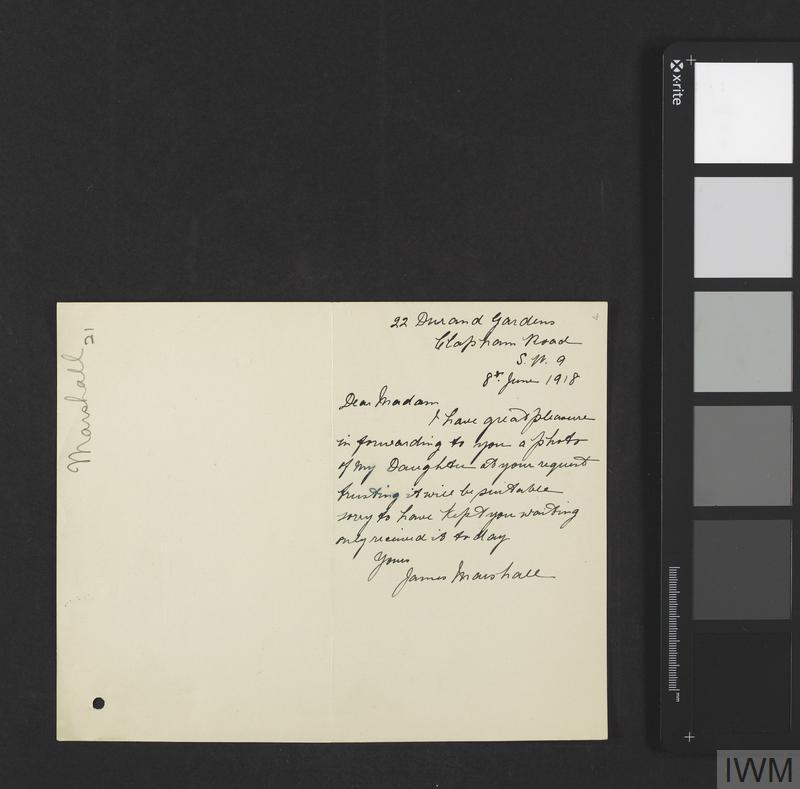 22 Durand Gardens
Clapham Road
S.W. 9
8th June 1918
Dear Madam
I have great pleasure
in forwarding to you a photo
of my Daughter at your request
trusting it will be suitable
sorry to have kept you waiting
only received it to day
Yours
James Marshall
Marshall
21
x-rite
mm
IWM